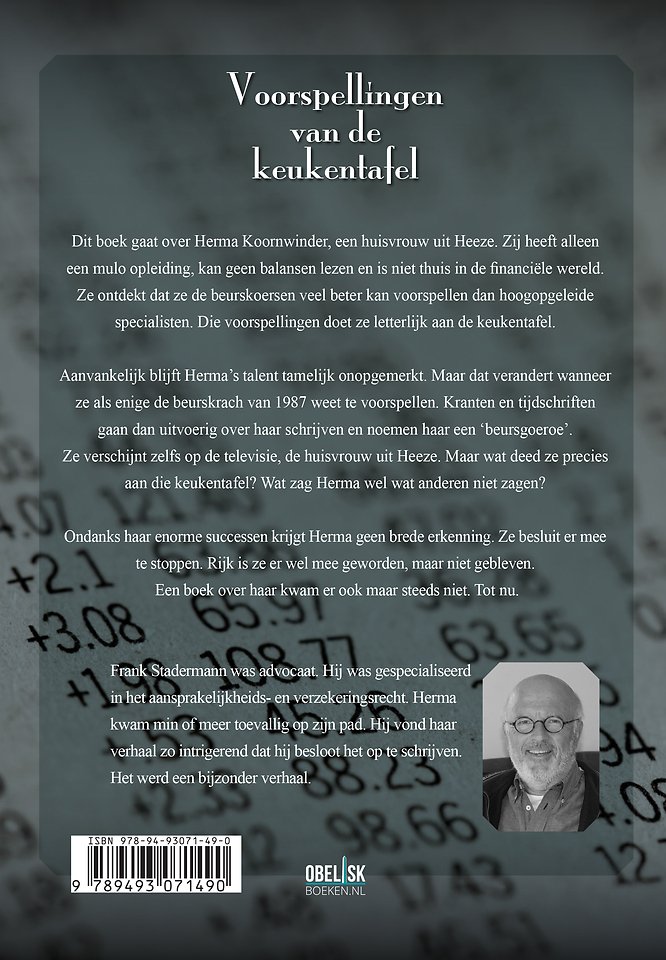 Voorspellingen
van de
keukentafel
Dit boek gaat over Herma Koornwinder, een huisvrouw uit Heeze. Zij heeft alleen
een mulo opleiding, kan geen balansen lezen en is niet thuis in de financiële wereld.
Ze ontdekt dat ze de beurskoersen veel beter kan voorspellen dan hoogopgeleide
specialisten. Die voorspellingen doet ze letterlijk aan de keukentafel.
Aanvankelijk blijft Herma's talent tamelijk onopgemerkt. Maar dat verandert wanneer
ze als enige de beurskrach van 1987 weet te voorspellen. Kranten en tijdschriften
gaan dan uitvoerig over haar schrijven en noemen haar een ‘beursgoeroe’.
Ze verschijnt zelfs op de televisie, de huisvrouw uit Heeze. Maar wat deed ze precies
aan die keukentafel? Wat zag Herma wel wat anderen niet zagen?
Ondanks haar enorme successen krijgt Herma geen brede erkenning. Ze besluit er mee
te stoppen. Rijk is ze er wel mee geworden, maar niet gebleven.
Een boek over haar kwam er ook maar steeds niet. Tot nu.
+2.1
+3.08
65.97
108.77
63.65
Frank Stadermann was advocaat. Hij was gespecialiseerd
in het aansprakelijkheids- en verzekeringsrecht. Herma
kwam min of meer toevallig op zijn pad. Hij vond haar
verhaal zo intrigerend dat hij besloot het op te schrijven.
Het werd een bijzonder verhaal.
88.23
98.66
17.43
ISBN 978-94-93071-49-0
9 789493 071490
OBELISK
BOEKEN.NL